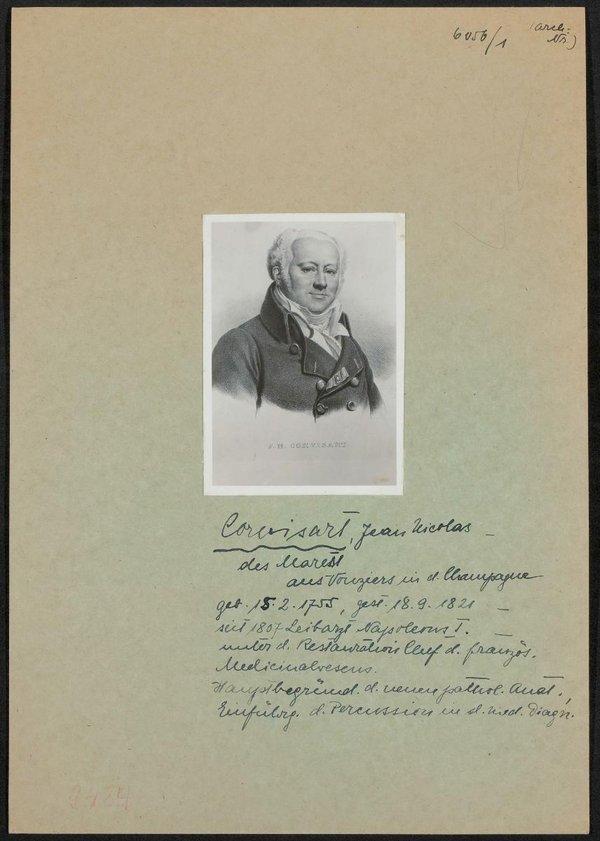 6056/1 (Arch.
Nr.)
J. N. CORVISART.
Corvisart, Jean Nicolas –
des Marest
aus Vouziers in d. Champagne
geb. 15.2.1755, gest. 18.9.1821 –
seit 1807 Leibarzt Napoleons I.
unter d. Restauration Chef d. französ.
Medicinalwesens.
Hauptbegründ. d. neuen pathol. Anat.,
Einführg. d. Percussion in d. med. Diagn.